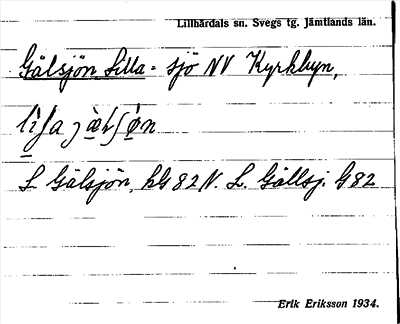 Lillhärdals sn. Svegs tg. Jämtlands län.
Gälsjön Lilla = sjö NV Kyrkbyn,
L. Gälsjön, kG 82 N. L. Gällsj. G 82
Erik Eriksson 1934.